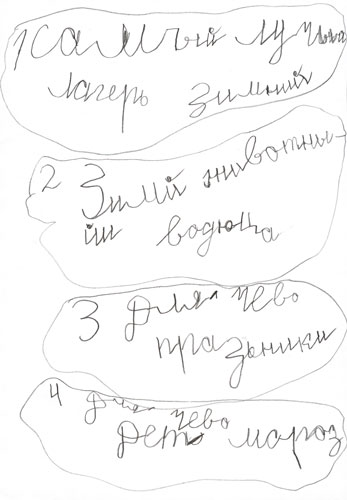 1 самый лучый
лагерь зимний
2 Зимй животны-
йи водюца
3 для чево
празьники
4 для чево
дет мороз